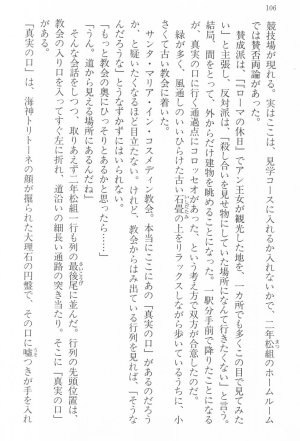 106
競技場が現れる。実はここは、見学コースに入れるか入れないかで、二年松組のホームルーム
では賛否両論があった。
賛成派は、「『ローマの休日』でアン王女が観光した地を、一カ所でも多く自分も見てみた
い」と主張し、反対派は、「殺し合いを見せ物にしていた場所になんて行きたくない」と言う。
結局、間をとって、外からだけ建物を眺めることになった。一駅分手前で降りたことになる
が、真実の口に行く通過点にコロッセオがあった、という考え方で双方が合意したのだ。
緑が多く、風通しのいいひらけた古い石畳の上をリラックスしながら歩いているうちに、小
さくて古い教会に着いた。
サンタ・マリア・イン・コスメディン教会。本当にここにあの「真実の口」があるのだろう
か、と疑いたくなるほど目立たない。けれど、教会からはみ出ている行列を見れば、「そうな
んだろうな」とうなずかずにはいられない。
「もっと教会の奥にひっそりとあるかと思ったら……」
「うん。道から見える場所にあるんだね」
そんな会話をしつつ、取りあえず二年松組一行も列の最後尾に並んだ。行列の先頭位置は、
教会の入り口を入ってすぐ左に折れ、道沿いの細長い通路の突き当たり。そこに「真実の口」
はあった。
「真実の口」は、海神トリトーネの顔が掘られた大理石の円盤で、その口に嘘つきが手を入れ